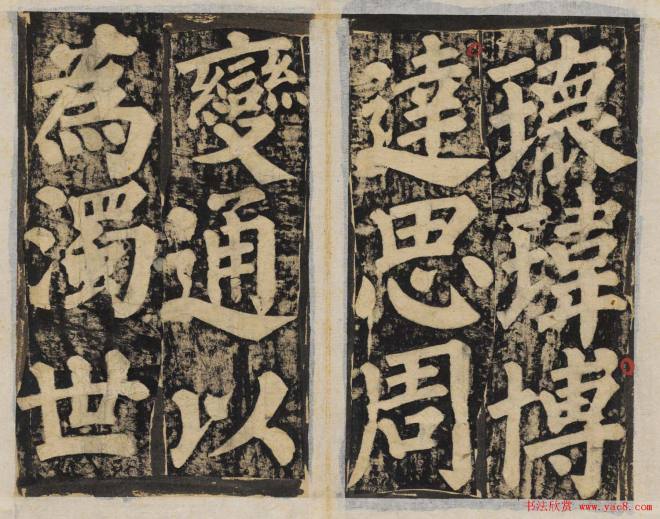 瓌瑋博
達思周
變通以
為濁世
书法欣赏 www.yac8.com